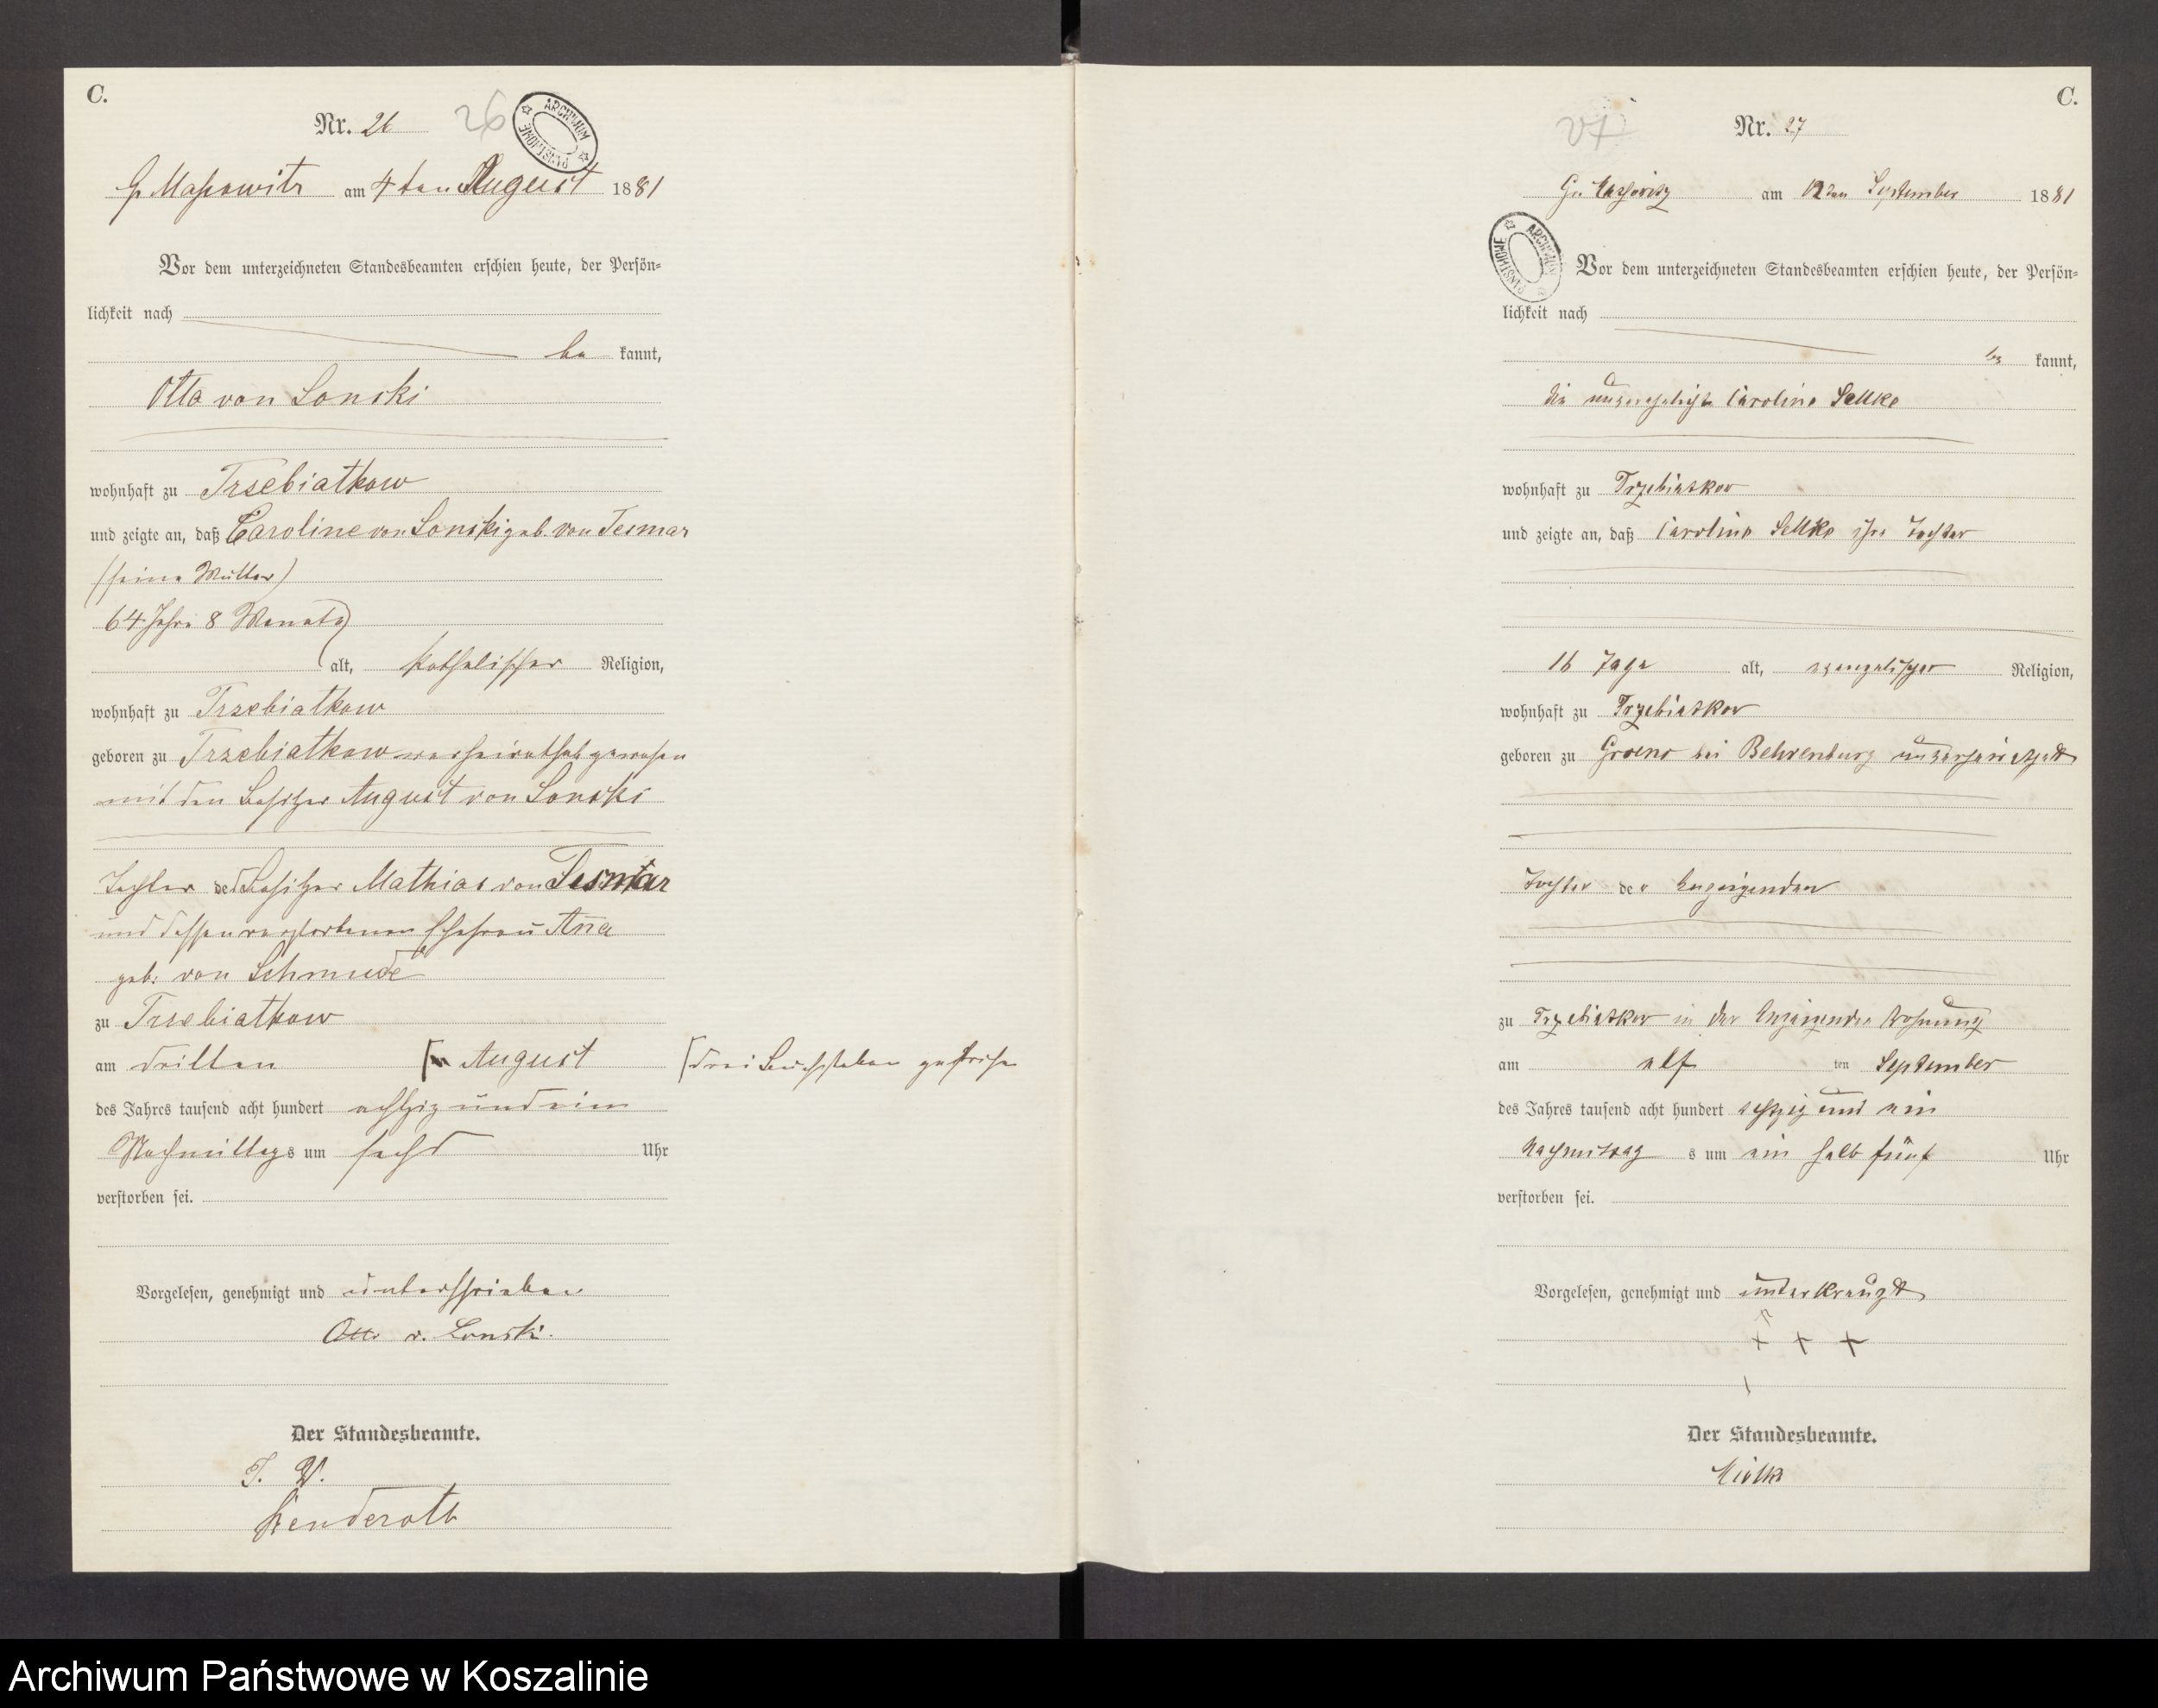 C.
Nr. 26
26
ARCHIWUM PAŃSTWOWE
Gr Massowitz am 4ten August 1881
Vor dem unterzeichneten Standesbeamten erschien heute, der Persön-
lichkeit nach
be kannt,
Otto von Lonski
wohnhaft zu Trzebiatkow
und zeigte an, daß Caroline von Lonski geb. von Tesmar
(seine Mutter)
64 Jahre 8 Monate
alt, katholischer Religion,
wohnhaft zu Trzebiatkow
geboren zu Trzebiatkow verheirathet gewesen
mit den Besitzer August von Lonski
Tochter des Besitzer Mathias von Tesmar
und dessen verstorbenen Ehefrau Anna
geb. von Schmude
zu Trzebiatkow
am dritten August
[drei Buchstaben gestrichen
des Jahres tausend acht hundert achtzig und ein
Nachmittags um sechs Uhr
verstorben sei.
Vorgelesen, genehmigt und unterschrieben
Otto v. Lonski.
Der Standesbeamte.
J. V.
Henderoth
C.
Nr. 27
27
Gr. Massowitz am 12ten September 1881
ARCHIWUM PAŃSTWOWE
Vor dem unterzeichneten Standesbeamten erschien heute, der Persön-
lichkeit nach
be kannt,
die unverehelichte Caroline Sellke
wohnhaft zu Trzebiatkow
und zeigte an, daß Caroline Sellke ihre Tochter
16 Tage alt, evangelischer Religion,
wohnhaft zu Trzebiatkow
geboren zu bei Behrenburg unverheirathet
Tochter der Anzeigenden
zu Trzebiatkow in der Anzeigenden Wohnung
am elf ten September
des Jahres tausend acht hundert achtzig und ein
Nachmittag s um ein halb fünf Uhr
verstorben sei.
Vorgelesen, genehmigt und unterkreuzt
+ + +
Der Standesbeamte.
Mielke
Archiwum Państwowe w Koszalinie